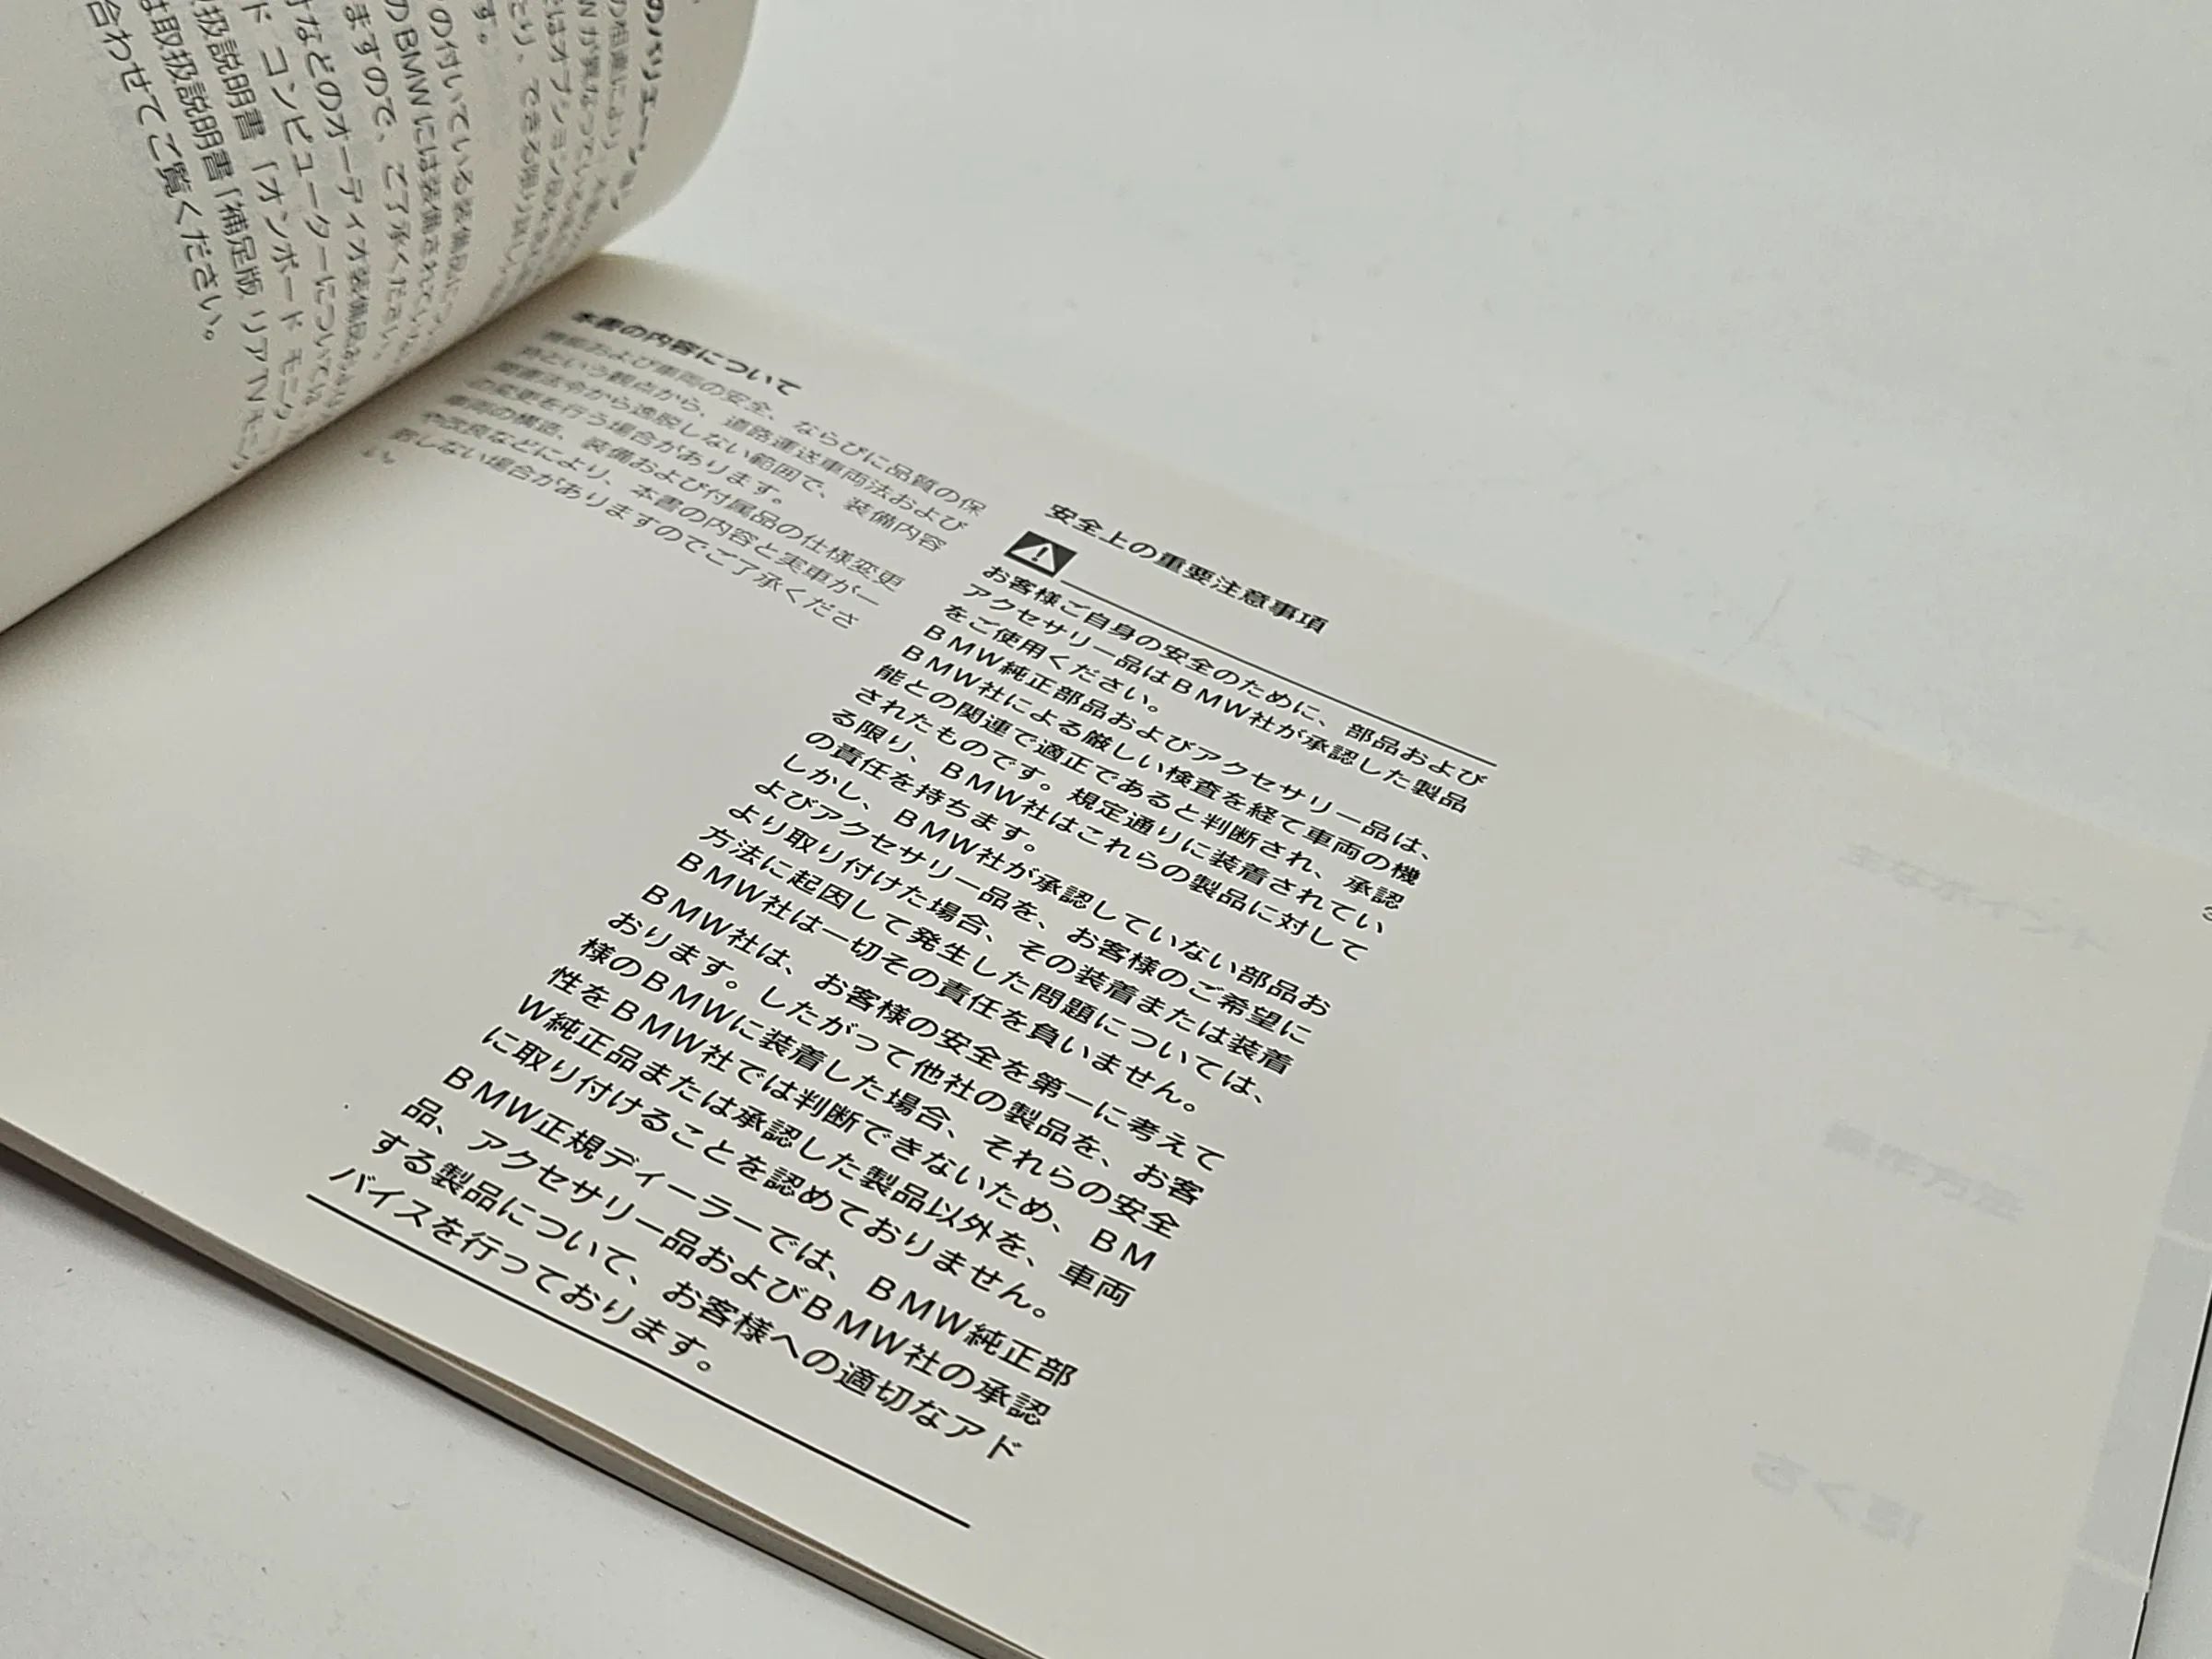 のバリエーション
の付いている装備品につ
のBMWには装備されてい
ますので、ご了承ください。
などのオーディオ装備品および
ド コンピューターについては
扱説明書「オンボード モニタ
取扱説明書「補足版 リアTVモニタ
合わせてご覧ください。
本書の内容について
機能および車両の安全、ならびに品質の保
持という観点から、道路運送車両法および
関連法令から逸脱しない範囲で、装備内容
の変更を行う場合があります。
車両の構造、装備および付属品の仕様変更
や改良などにより、本書の内容と実車が一
致しない場合がありますのでご了承くださ
い。
安全上の重要注意事項
お客様ご自身の安全のために、部品および
アクセサリー品はBMW社が承認した製品
をご使用ください。
BMW純正部品およびアクセサリー品は、
BMW社による厳しい検査を経て車両の機
能との関連で適正であると判断され、承認
されたものです。規定通りに装着されてい
る限り、BMW社はこれらの製品に対して
の責任を持ちます。
しかし、BMW社が承認していない部品お
よびアクセサリー品を、お客様のご希望に
より取り付けた場合、その装着または装着
方法に起因して発生した問題については、
BMW社は一切その責任を負いません。
BMW社は、お客様の安全を第一に考えて
おります。したがって他社の製品を、お客
様のBMWに装着した場合、それらの安全
性をBMW社では判断できないため、BM
W純正品または承認した製品以外を、車両
に取り付けることを認めておりません。
BMW正規ディーラーでは、BMW純正部
品、アクセサリー品およびBMW社の承認
する製品について、お客様への適切なアド
バイスを行っております。